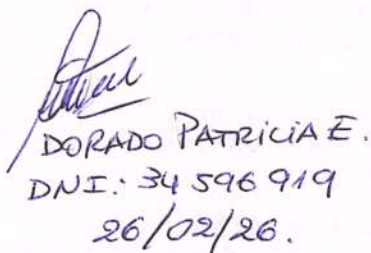 DORADO PATRICIA E.
DNI: 34 596 919
26/02/26.